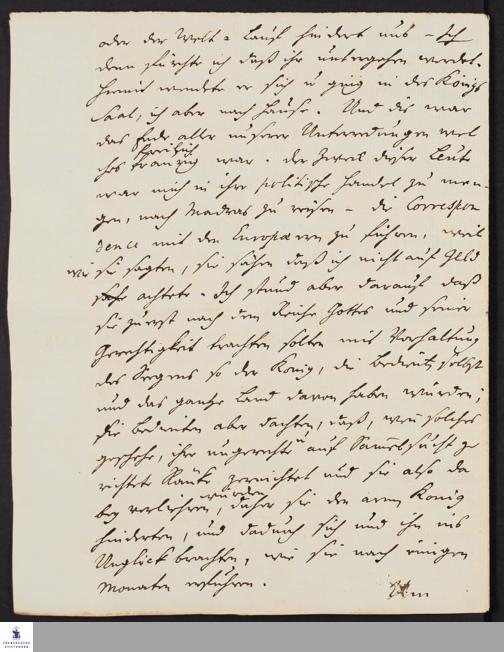 oder der Welt = Lauf hindert uns – Ich
denn fürchte ich daß ihr untergehen werdet.
Hiemit wendete er sich u ging in des Königs
Saal, ich aber nach Hause. Und dis war
das Ende aller unserer Unterredungen wel
ches freilich traurig war. Der Zweck dieser Leute
war mich in ihre politische Händel zu men-
gen, nach Madras zu reisen – die Correspon
dence mit den Europæern zu führen, weil
wie sie sagten, sie sähen daß ich nicht auf Geld
achtete. Ich stund aber darauf daß
sie zuerst nach dem Reiche Gottes und seiner
Gerechtigkeit trachten solten mit Vorhaltung
des Segens so der König, die Bediente selbst
und das gantze Land davon haben würden;
die Bedienten aber dachten, daß, wen solches
geschehe, ihre ungerechte auf Samelsucht ge
richtete Ränke zernichtet und sie also da
bey verliehren würden, daher sie den armen König
hinderten, und dadurch sich und ihn ins
Unglück brachten, wie sie nach einigen
Monaten erfuhren.
FRANCKESCHE
STIFTUNGEN